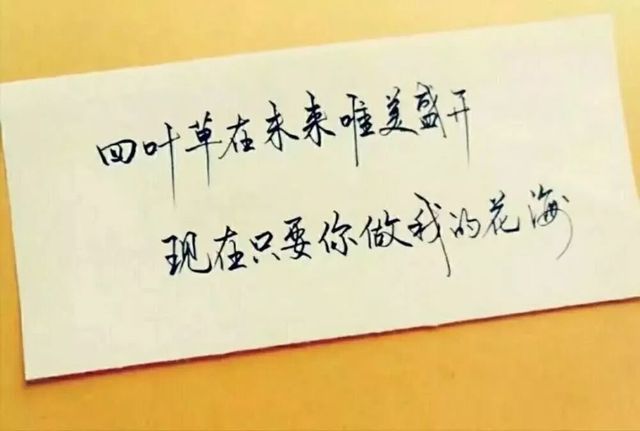 四叶草在未来唯美盛开
现在只要你做我的花海